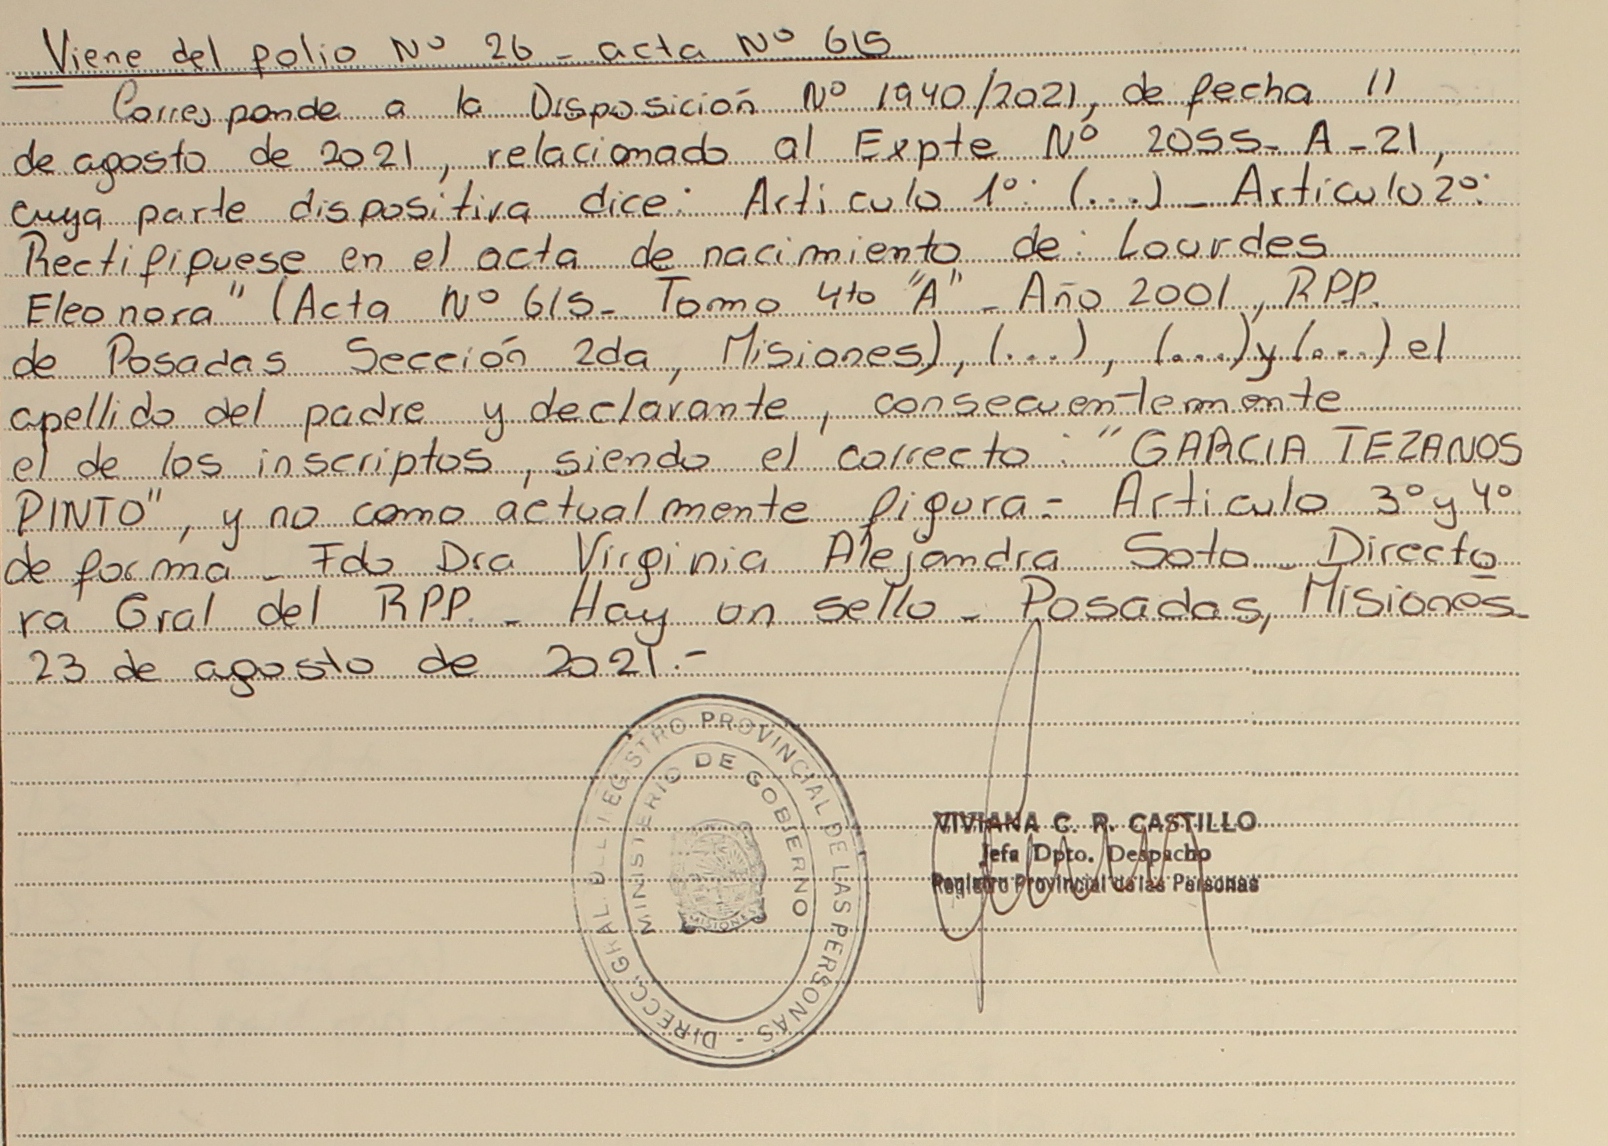 Viene del folio Nº 26 - acta Nº 615
Corresponde a la Disposición Nº 1940/2021, de fecha 11
de agosto de 2021, relacionado al Expte Nº 2055- A - 21,
cuya parte dispositiva dice: Articulo 1º: (...) - Artículo 2º:
Rectifiquese en el acta de nacimiento de: Lourdes
Eleonora" (Acta Nº 615- Tomo 4to "A" - Año 2001, RPP.
de Posadas Sección 2da, Misiones), (...), (...) y (...) el
apellido del padre y declarante, consecuentemente
el de los inscriptos, siendo el correcto: "GARCIA TEZANOS
PINTO", y no como actualmente figura - Articulo 3º y 4º
de forma - Fdo Dra Virginia Alejandra Soto - Directo
ra Gral del RPP. - Hay un sello - Posadas, Misiones
23 de agosto de 2021.-
DIRECC. GRAL. DEL REGISTRO PROVINCIAL DE LAS PERSONAS -
MINISTERIO DE GOBIERNO
MISIONES
VIVIANA C. R. CASTILLO
Jefa Dpto. Despacho
Registro Provincial de las Personas